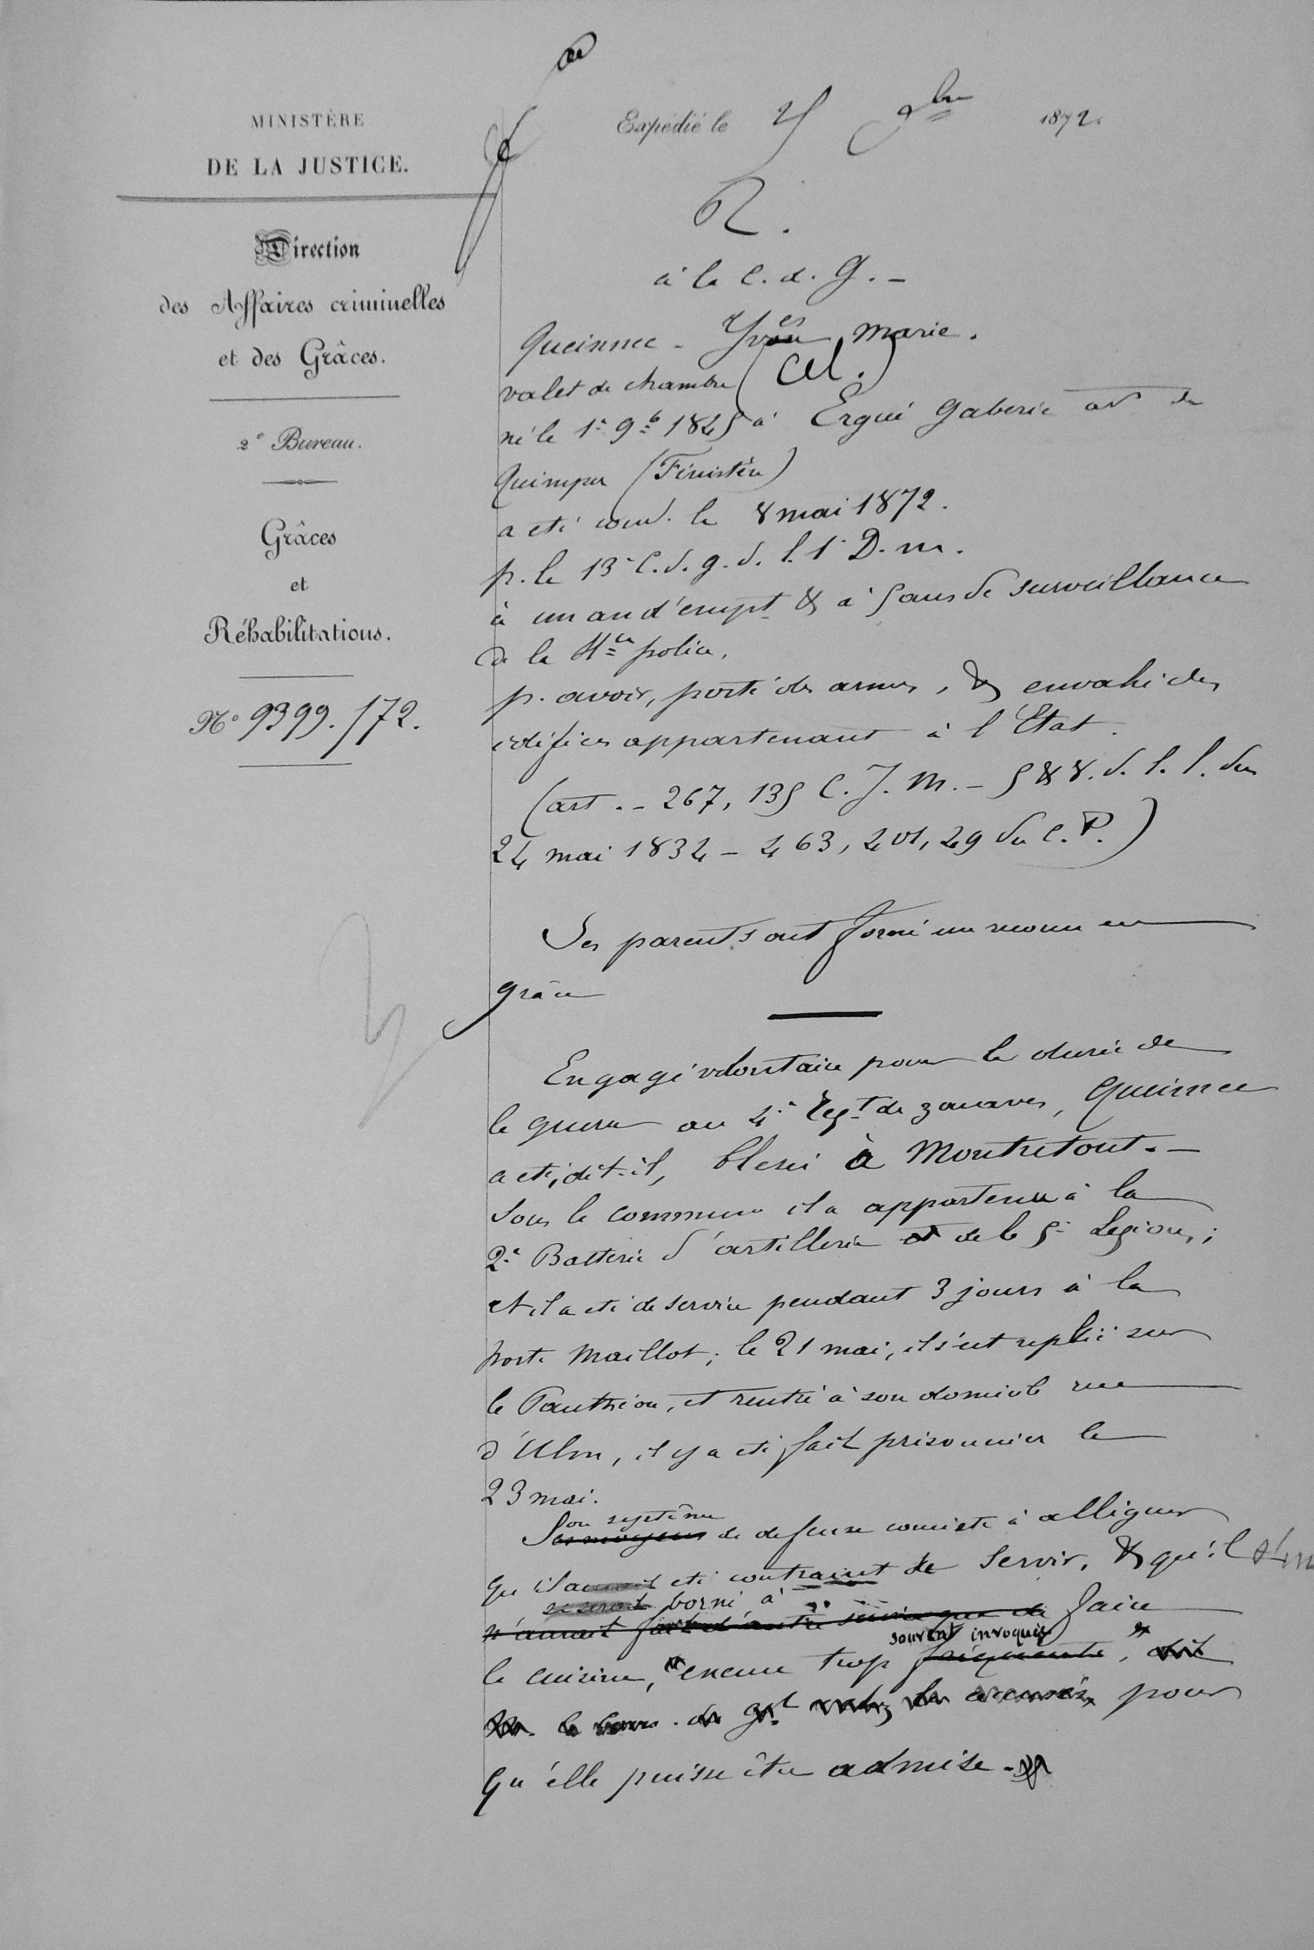 MINISTÈRE
DE LA JUSTICE.
Direction
des Affaires criminelles
et des Grâces.
2e Bureau.
Grâces
et
Réhabilitations.
No 9399. /72.
Expédié le 9bre 1872.
R.
à la C. d. G. –
Queinnec – Yves Marie.
valet de chambre (Cel.)
né le 1er 9b 1845 à Ergué Gaberic art de
Quimper (Finistère)
a été cond. le 8 mai 1872.
p. le 13e C. d. g. d. l. 1e D. m.
à un an d'empt & à 5 ans de surveillance
de la Hte police,
p. avoir, porté des armes, & envahi des
édifices appartenant à l'Etat.
(art. – 267, 135 C. J. M. – 5 & 8. d. l. l. du
24 mai 1834 – 463, 401, 49 du C. P.)
Ses parents ont formé un recours en
grâce
Engagé volontaire pour la durée de
la guerre au 4e Regt de zouaves, Queinnec
a été, dit-il, blessé à Montretout. –
Sous la commune il a appartenu à la
2e Batterie d'artillerie de la 5e Légion;
et il a été de service pendant 3 jours à la
porte Maillot; le 21 mai, il s'est replié sur
le Panthéon, et rentré à son domicile rue
d'Ulm, il y a été fait prisonnier le
23 mai.
Son système
Ses moyens de défense consiste à alléguer
qu'il aurait été contraint de servir, & qu'il s'est
se serait borné à
n'aurait fait d'autre service que de faire
souvent invoquée
la cuisine, excuse trop fréquente, dit
pour
qu'elle puisse être admise. –